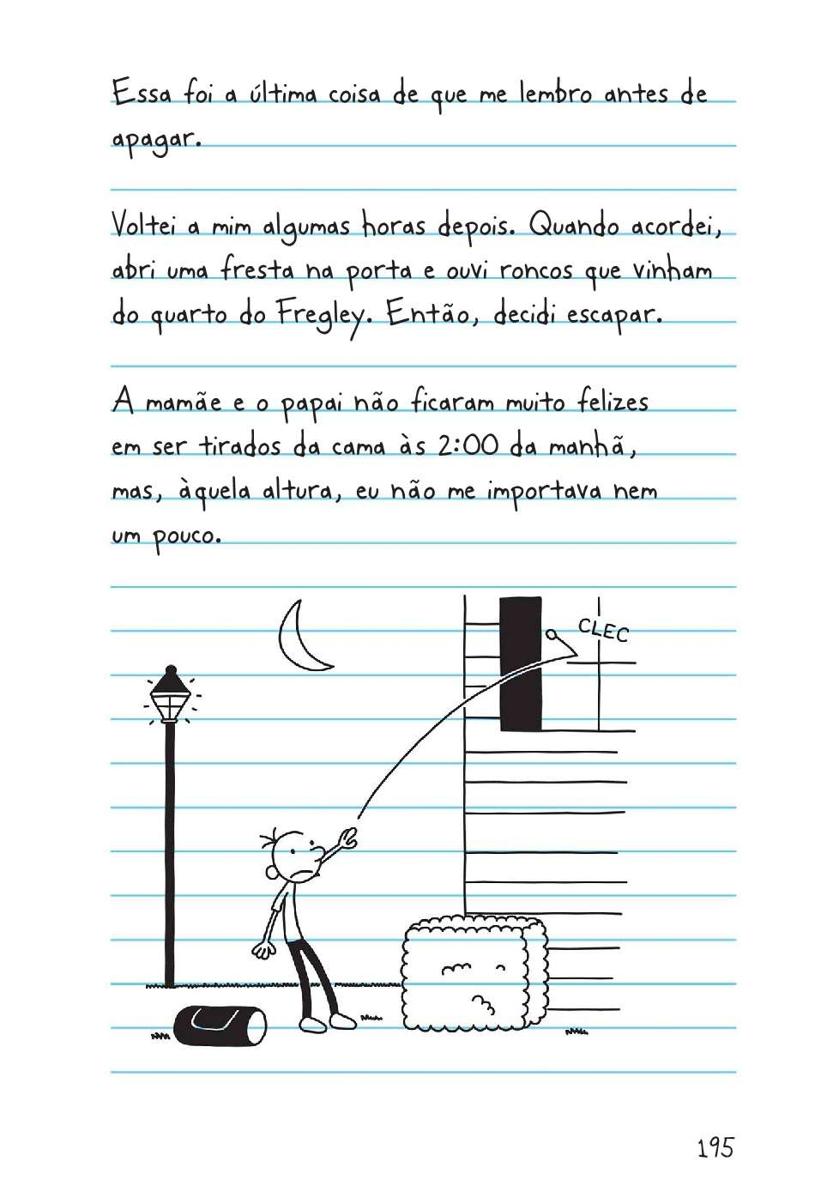 Essa foi a última coisa de que me lembro antes de
apagar.
Voltei a mim algumas horas depois. Quando acordei,
abri uma fresta na porta e ouvi roncos que vinham
do quarto do Fregley. Então, decidi escapar.
A mamãe e o papai não ficaram muito felizes
em ser tirados da cama às 2:00 da manhã,
mas, àquela altura, eu não me importava nem
um pouco.
CLEC
195